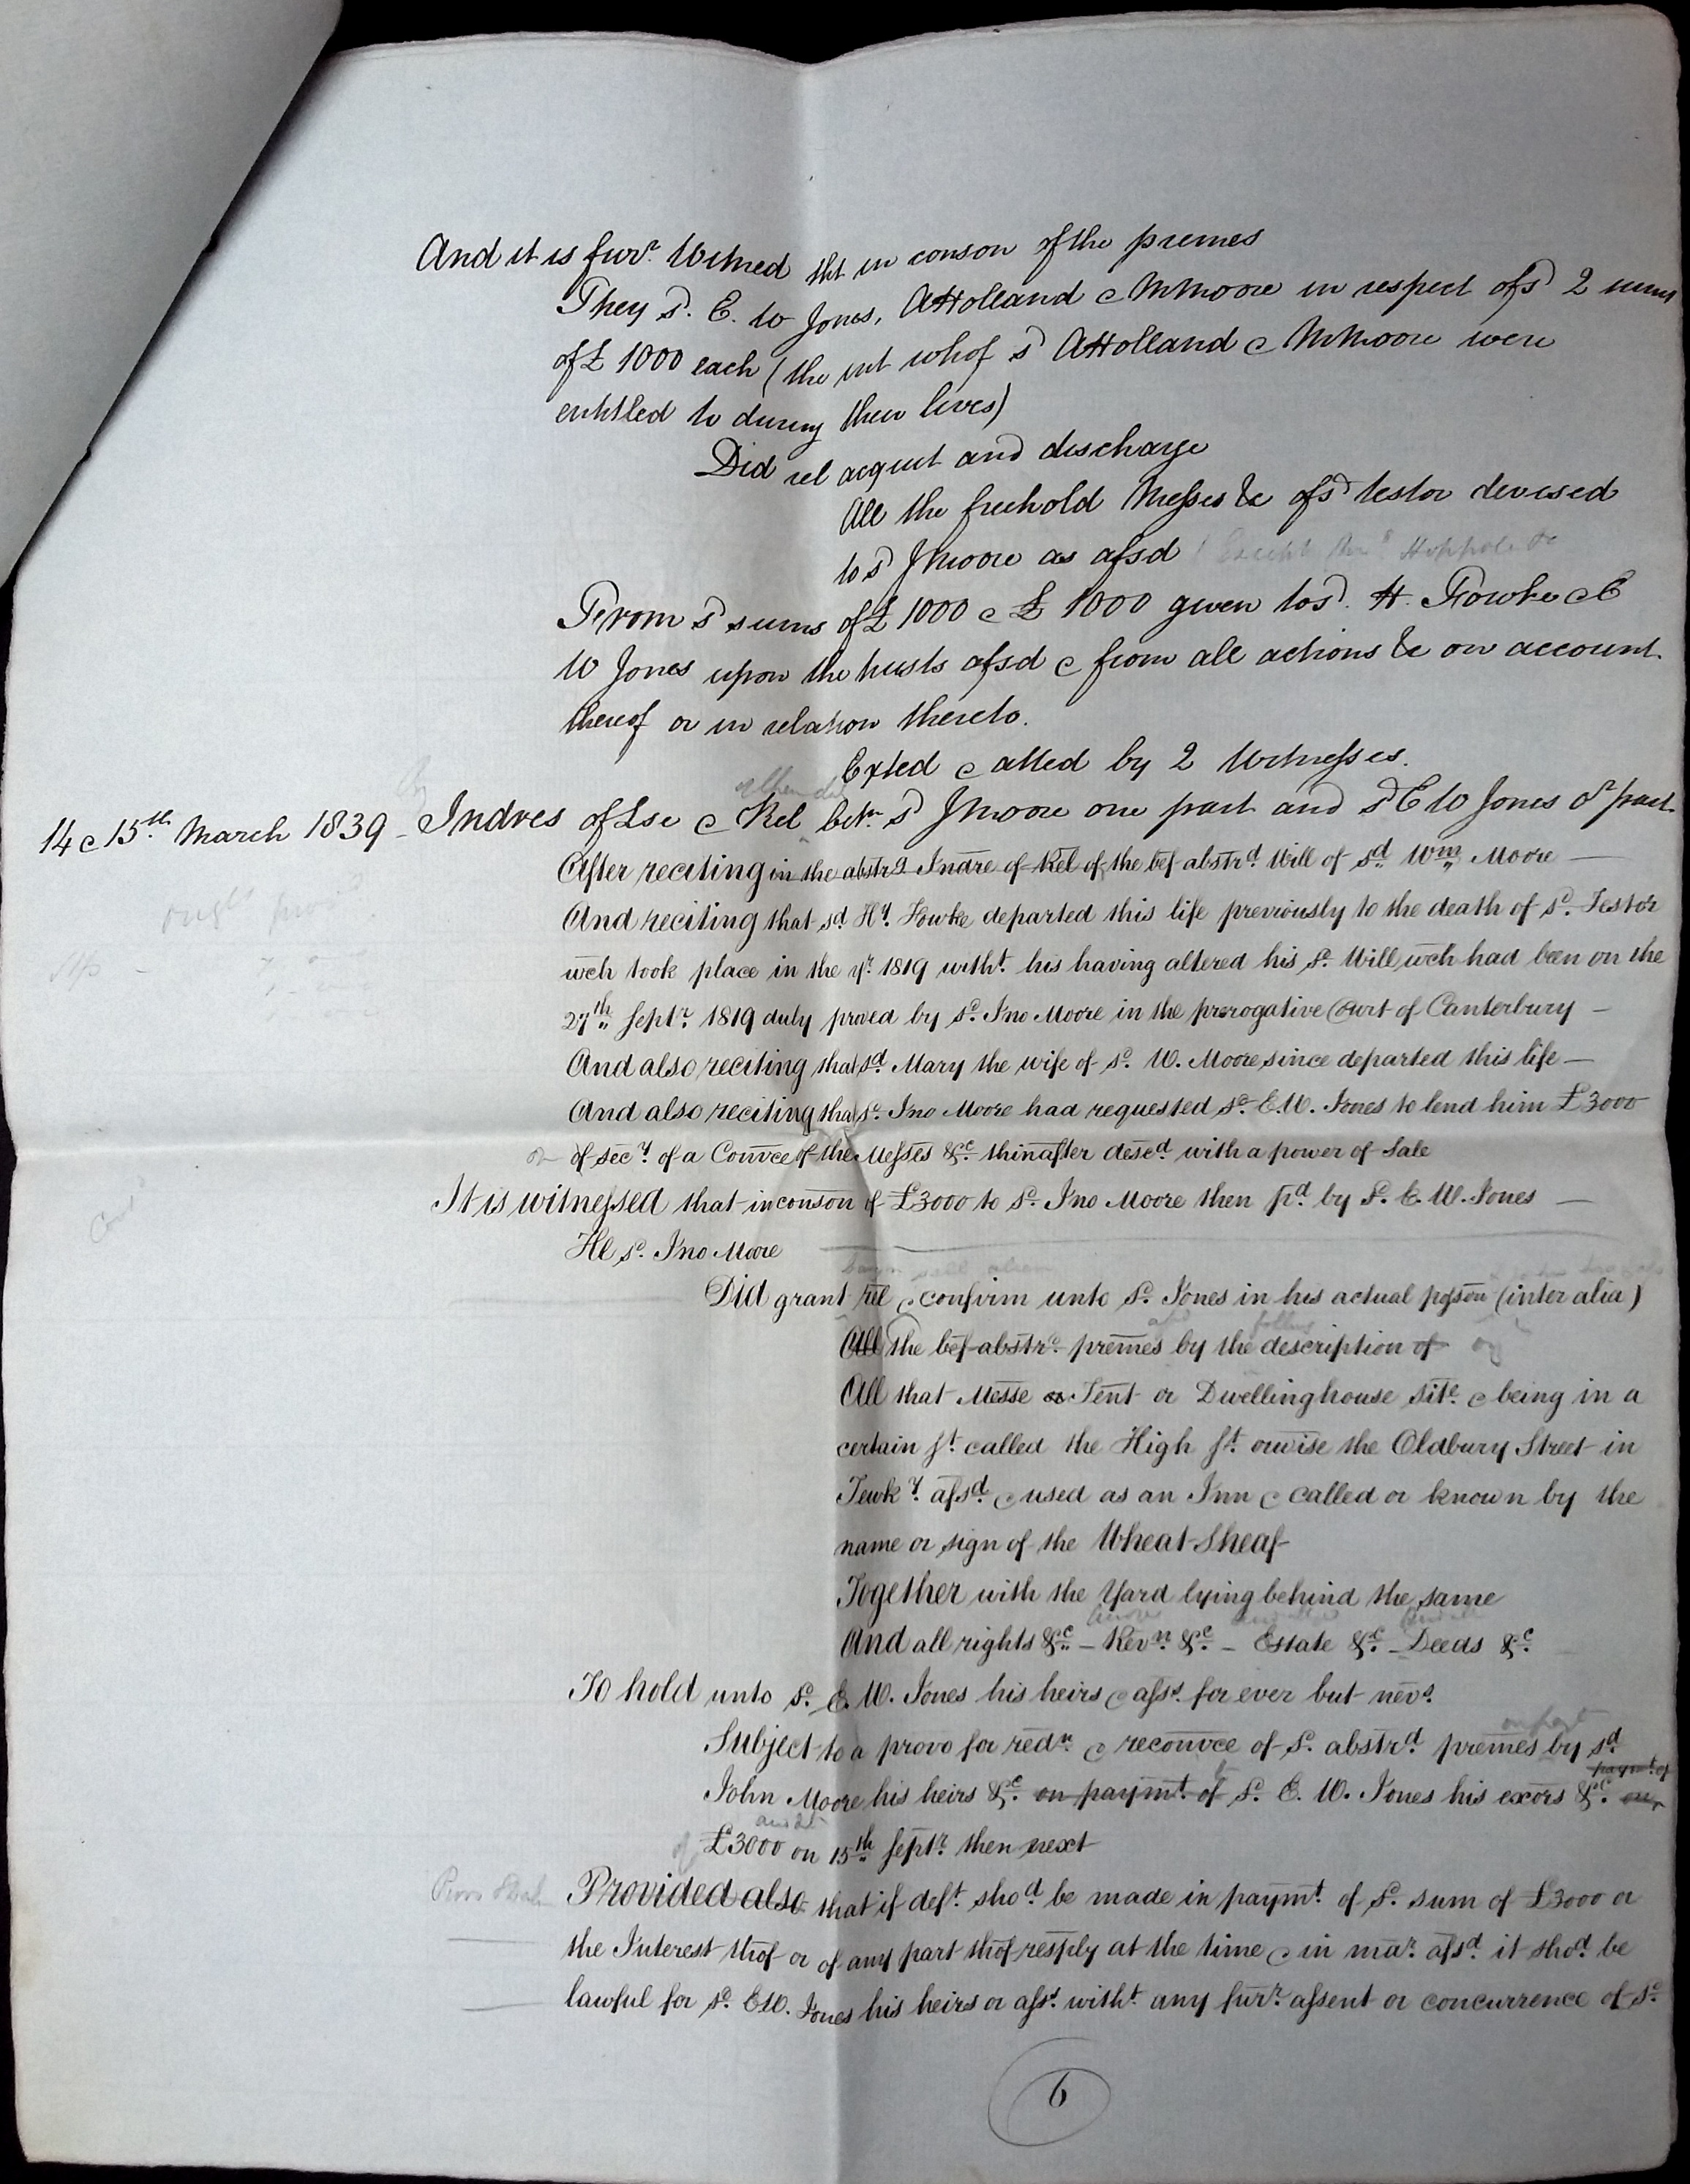 And it is fur^r. Witned tht in conson of the premes
They s^d. E. W Jones, A Holland & M Moore in respect of s^d 2 sums
of £ 1000 each (the int whof s^d A Holland & M Moore were
entitled to during their lives)
Did rel acquit and discharge
All the freehold Messes &c of s^d testor devised
to s^d J Moore as afsd (Except
From s^d sums of £ 1000 & £ 1000 given to s^d. H. Fowke & E
W Jones upon the trusts afsd & from all actions &c on account
thereof or in relation thereto.
Exted & atted by 2 Witnesses.
14 & 15th March 1839 - Indres of Lse & Rel betn. s^d J Moore one part and s^d E W Jones o^r part
After reciting in the abstrd Indre of Rel of the bef abstrd Will of sd Wm Moore —
And reciting that sd Hy. Fowke departed this life previously to the death of sd. Testor
wch took place in the yr. 1819 witht. his having altered his sd. Will wch had been on the
27th Septr. 1819 duly proved by sd. Jno Moore in the prerogative Court of Canterbury —
And also reciting that sd. Mary the wife of sd. W. Moore since departed this life —
And also reciting that sd. Jno Moore had requested sd. E. W. Jones to lend him £3000
on of secy. of a Convce of the Messes &c. thinafter descd with a power of Sale
It is witnessed that in conson of £3000 to sd. Jno Moore then pd. by sd. E. W. Jones —
He sd. Jno Moore
Did grant rel & confirm unto sd. Jones in his actual posson (inter alia)
All the bef abstrd. premes by the description of
All that Messe or Tent or Dwellinghouse site. & being in a
certain st. called the High st. orwise the Oldbury Street in
Tewky. afsd. & used as an Inn & called or known by the
name or sign of the Wheat Sheaf
Together with the Yard lying behind the same
And all rights &c. — Revn. &c. — Estate &c. — Deeds &c.
To hold unto sd. E. W. Jones his heirs & asss. for ever but nevs.
on part
Subject to a provo for redn. & reconvce of sd. abstrd. premes by sd.
paymt. of
John Moore his heirs &c. on paymt. of sd. E. W. Jones his exors &c. on
and int
of £3000 on 15th Septr. then next
Provided also that if deft. shod be made in paymt. of sd. sum of £3000 or
the Interest thof or of any part thof resply at the time & in mar. afsd. it shod be
lawful for sd. E W. Jones his heirs or asss. witht. any furr. assent or concurrence of sd.
6